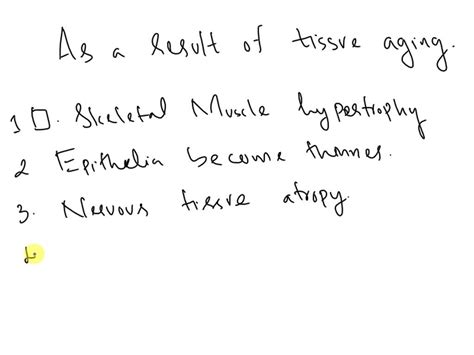 As a result of tissue aging.
1 □. Skeletal Muscle hypertrophy
2 Epithelia become thinner.
3. Nervous tissue atropy.